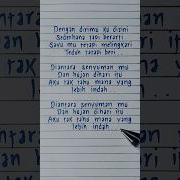 Dengan dirimu ku disini
Sederhana tapi berarti
Satu mu tetapi melingkari
Teduh tatapi beri . .
Diantara senyuman mu
Dan hujan dihari itu
Aku tak tahu mana yang
lebih indah
Diantara senyuman mu
Dan hujan dihari itu
Aku tak tahu mana yang
lebih indah .